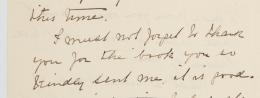 this time.
I must not forget to thank
you for the book you so
kindly sent me. it is good.